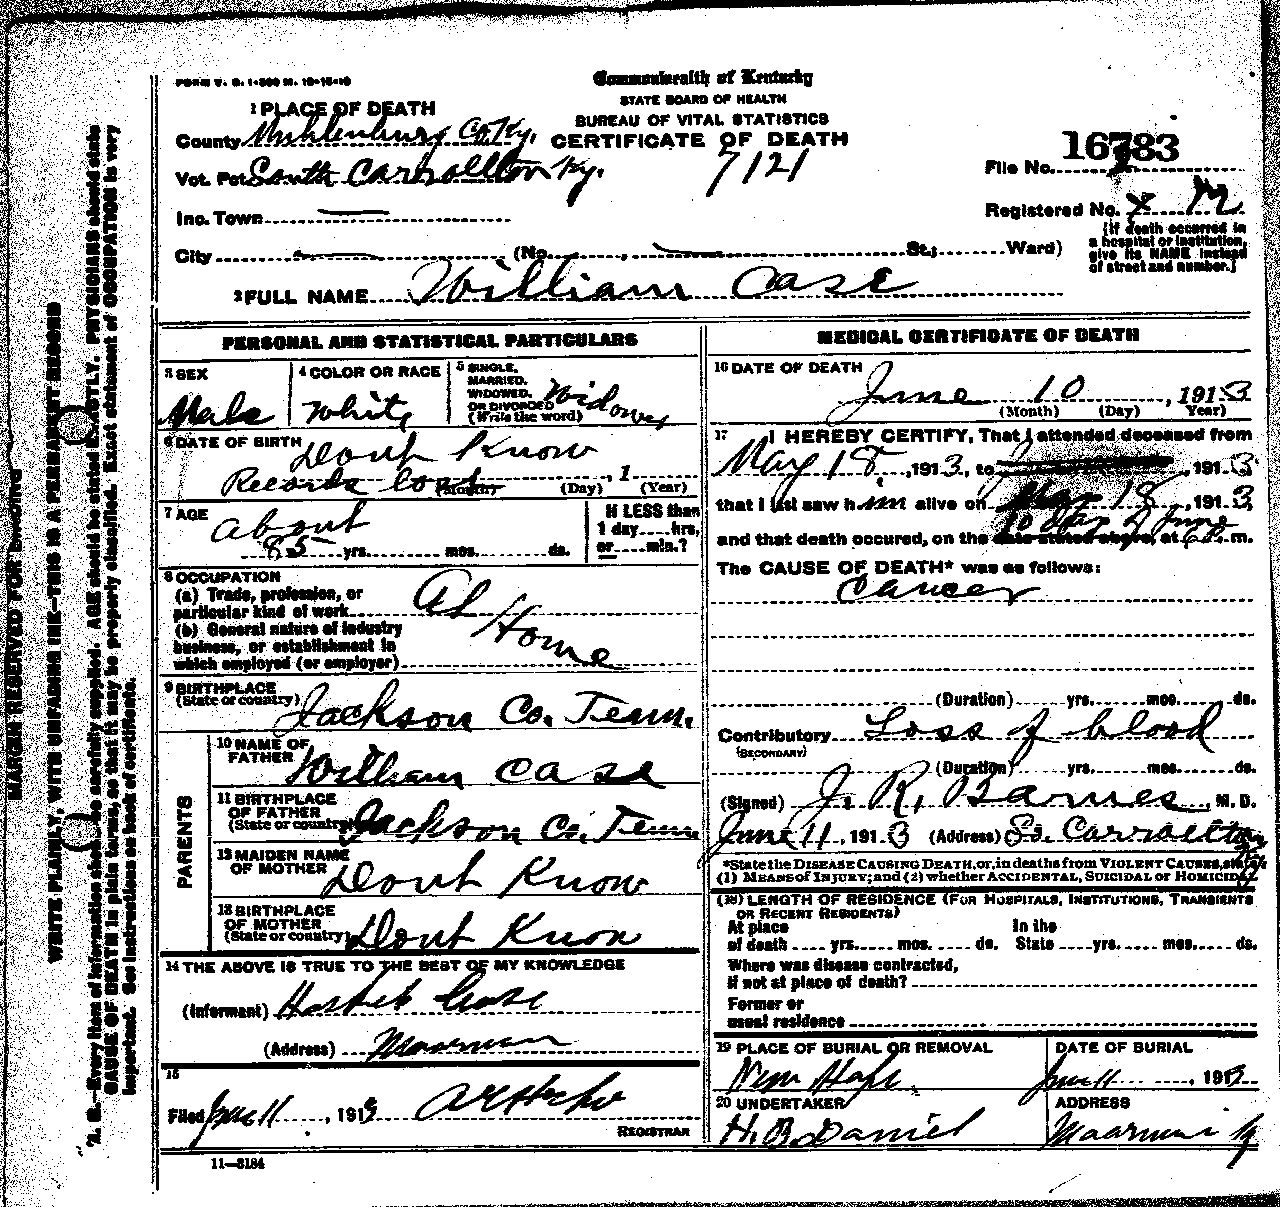 FORM V. S. 1-300 M. 12-15-10
Commonwealth of Kentucky
STATE BOARD OF HEALTH
BUREAU OF VITAL STATISTICS
CERTIFICATE OF DEATH
1 PLACE OF DEATH
County Muhlenburg Co. Ky.
Vot. Pct. South Carrollton Ky.
7121
File No. 16783
Inc. Town
Registered No. X M
City (No. , St.; Ward)
(If death occurred in
a hospital or institution,
give its NAME instead
of street and number.)
2 FULL NAME William Case
PERSONAL AND STATISTICAL PARTICULARS
3 SEX
Male
4 COLOR OR RACE
White
5 SINGLE,
MARRIED,
WIDOWED,
OR DIVORCED
(Write the word)
Widower
6 DATE OF BIRTH Dont Know
Records lost , 1
(Month) (Day) (Year)
7 AGE
about
85 yrs. mos. ds.
If LESS than
1 day hrs.
or min.?
8 OCCUPATION
(a) Trade, profession, or
particular kind of work
(b) General nature of industry
business, or establishment in
which employed (or employer)
At Home
9 BIRTHPLACE
(State or country)
Jackson Co. Tenn.
PARENTS
10 NAME OF
FATHER
William Case
11 BIRTHPLACE
OF FATHER
(State or country)
Jackson Co. Tenn
12 MAIDEN NAME
OF MOTHER
Dont Know
13 BIRTHPLACE
OF MOTHER
(State or country)
Dont Know
14 THE ABOVE IS TRUE TO THE BEST OF MY KNOWLEDGE
(Informant) Case
(Address) Moorman
15
Filed June 11 , 1913
REGISTRAR
11—3184
MEDICAL CERTIFICATE OF DEATH
16 DATE OF DEATH
June 10 , 1913
(Month) (Day) Year)
17 I HEREBY CERTIFY, That I attended deceased from
May 18 , 1913, to , 1913
that I last saw him alive on May 18 , 1913,
10 day of June
and that death occured, on the date stated above, at 6 P. m.
The CAUSE OF DEATH* was as follows:
Cancer
(Duration) yrs. mos. ds.
Contributory Loss of blood
(SECONDARY)
(Duration) yrs. mos. ds.
(Signed) J. R. Barnes , M. D.
June 11 , 1913 (Address) So. Carrollton
*State the DISEASE CAUSING DEATH, or, in deaths from VIOLENT CAUSES, state
(1) MEANS of INJURY; and (2) whether ACCIDENTAL, SUICIDAL or HOMICIDAL
(18) LENGTH OF RESIDENCE (FOR HOSPITALS, INSTITUTIONS, TRANSIENTS
OR RECENT RESIDENTS)
At place In the
of death yrs. mos. ds. State yrs. mos. ds.
Where was disease contracted,
if not at place of death?
Former or
usual residence
19 PLACE OF BURIAL OR REMOVAL
New Hope
DATE OF BURIAL
June 11 , 1913
20 UNDERTAKER
H. B. Daniel
ADDRESS
Moorman Ky
MARGIN RESERVED FOR BINDING
WRITE PLAINLY, WITH UNFADING INK—THIS IS A PERMANENT RECORD
N. B.—Every item of information should be carefully supplied. AGE should be stated EXACTLY. PHYSICIANS should state
CAUSE OF DEATH in plain terms, so that it may be properly classified. Exact statement of OCCUPATION is very
important. See instructions on back of certificate.